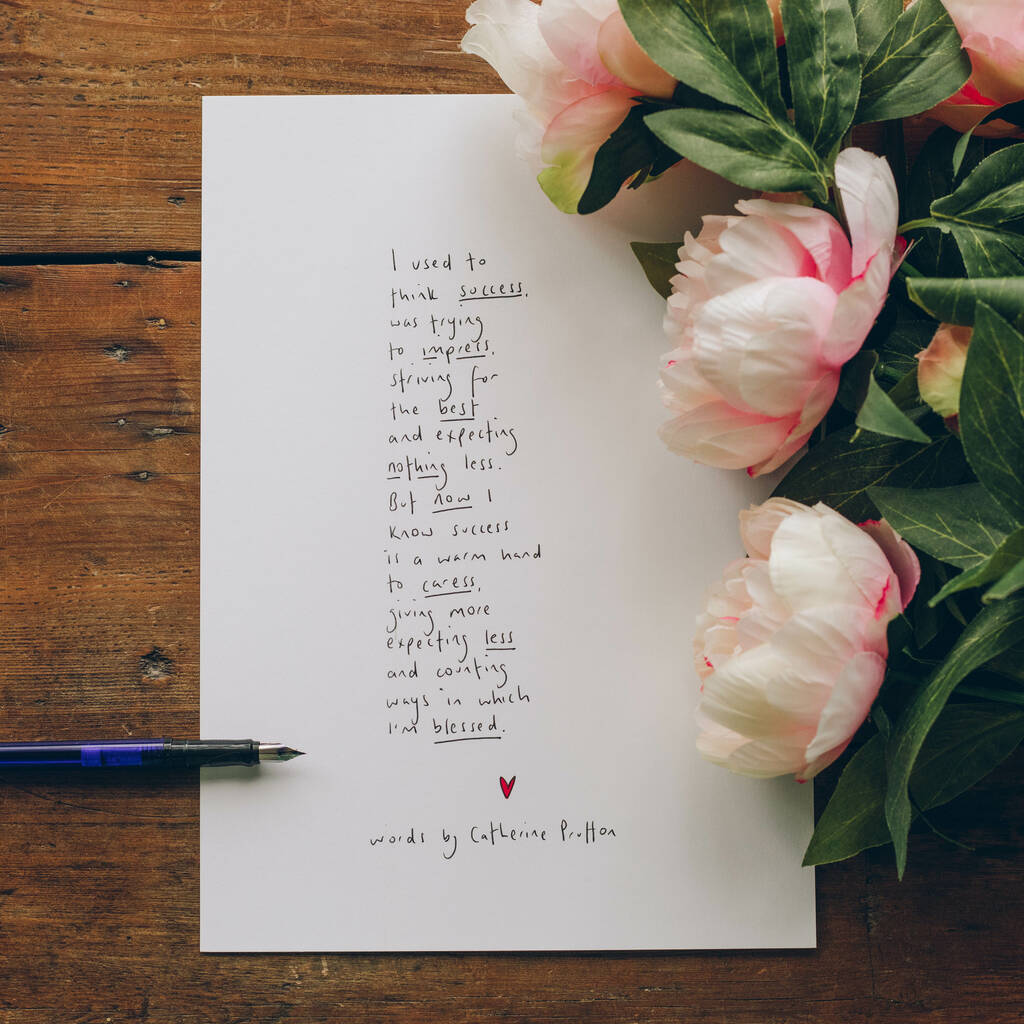 I used to
think success,
was trying
to impress,
striving for
the best
and expecting
nothing less.
But now I
know success
is a warm hand
to caress,
giving more
expecting less
and counting
ways in which
I'm blessed.
words by Catherine Prutton